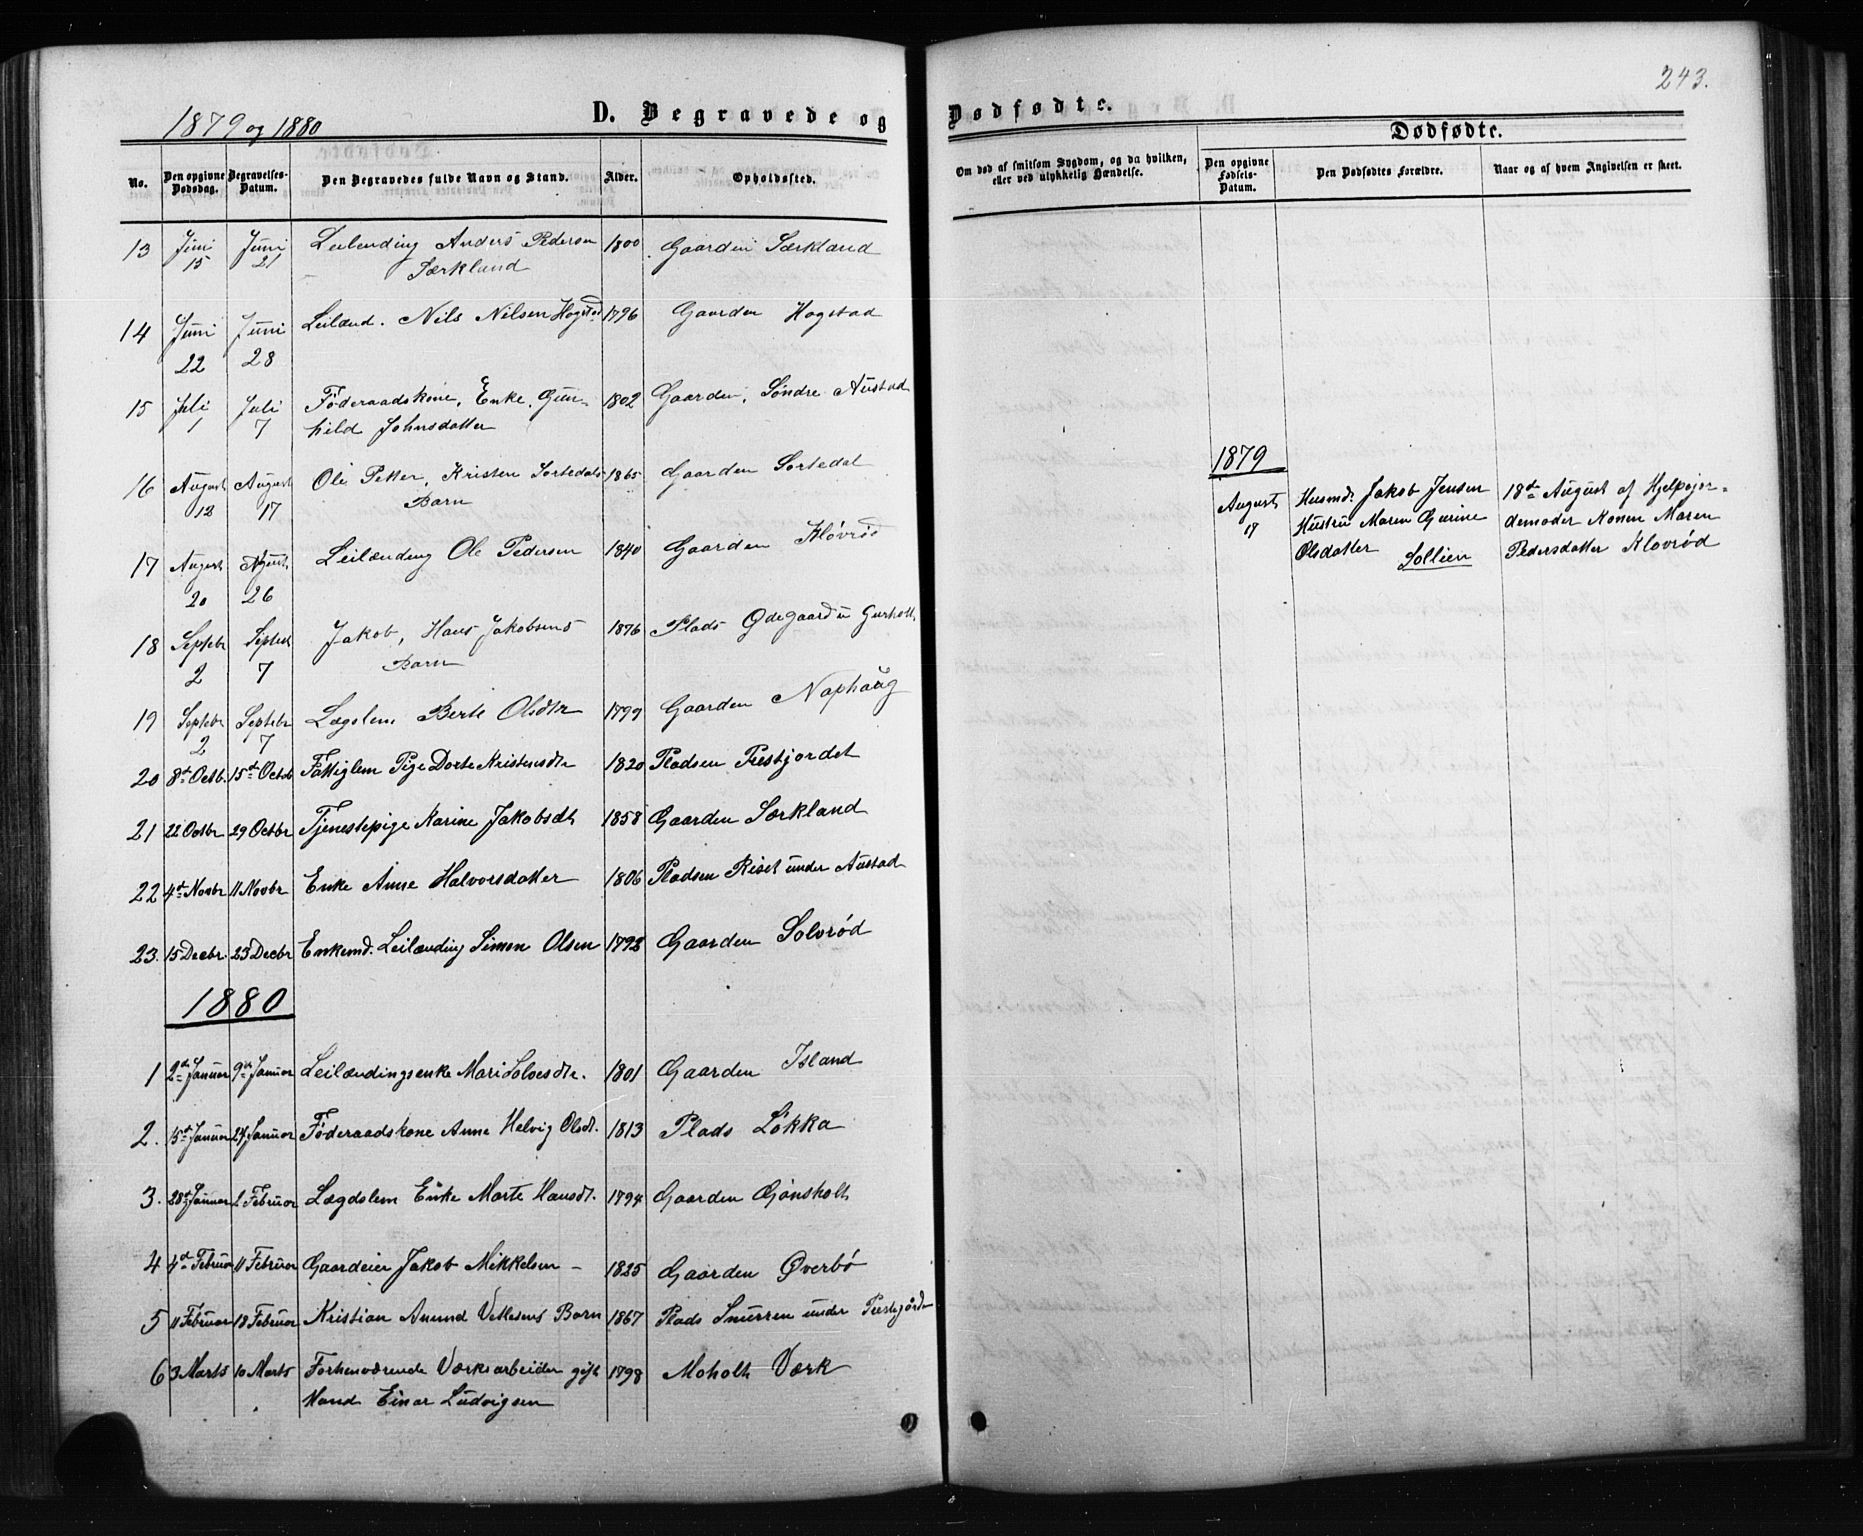 243.
1879 og 1880
D. Begravede og Dødfødte.
Dødfødte.
No.
Den opgivne Dødsdag.
Begravelses-Datum.
Den Begravedes fulde Navn og Stand.
Alder.
Opholdssted.
Om død af smitsom Sygdom, og da hvilken, eller ved ulykkelig Hændelse.
Den opgivne Fødsels-Datum.
Den Dødfødtes Forældre.
Naar og af hvem Angivelsen er skeet.
13 Juni 15 Juni 21 Leilending Anders Pedersen Særkland 1800 Gaarden Særkland
14 Juni 22 Juni 28 Leilænd. Nils Nilsen Hogstad 1796 Gaarden Hogstad
15 Juli 1 Juli 7 Föderaadskone, Enke, Gun-
hild Johnsdatter 1802 Gaarden, Søndre Austad
16 August 12 August 17 Ole Peter, Kristen Sortedals
Barn 1865 Gaarden Sortedal
17 August 20 August 26 Leilænding Ole Pedersen 1840 Gaarden Kløvrød
18 Septebr 2 Septbr 7 Jakob, Hans Jakobsens
Barn 1876 Plads Ødegaard u Gurholt
19 Septebr 2 Septebr 7 Lægslem Berte Olsdtr 1799 Gaarden Naphaug
20 8de Octb. 15de Octob Fattiglem Pige Dorte Kristensdtr 1820 Pladsen Prestjordet
21 22 Octbr 29 Octbr Tjenestepige Karine Jakobsdt 1858 Gaarden Særkland
22 4de Novbr 11 Novbr Enke Anne Halvorsdatter 1806 Pladsen Riset under Austad
23. 15 Decbr. 23 Decbr Enkemd. Leilænding Simon Olsen 1792 Gaarden Solvrød
1880
1 2den Januar 9de Januar Leilændingsenke Mari Solvesdtr. 1801 Gaarden Island
2. 15de Januar 24 Januar Föderaadskone Anne Helvig Olsdt. 1813 Plads Løkka
3. 28de Januar 2 Februar Lægdslem Enke Marte Hansdt. 1794 Gaarden Gjønsholt
4 4de Februar 11 Februar Gaardeier Jakob Mikkelsen – 1825 Gaarden Øverbø
5 11 Februar 18 Februar Kristian Anund Vetlesens Barn 1867 Plads Snurren under Prestegården
6 3 Marts 10 Marts Forhenværende Værksarbeider gift
Mand Einar Ludvigsen 1798 Moholt Værk
1879
August 17 Husmd. Jakob Jensen
Hustru Maren Gurine
Olsdatter Sollien
18de August af Hjelpejor=
demoder Konen Maren
Pedersdatter Klovrød